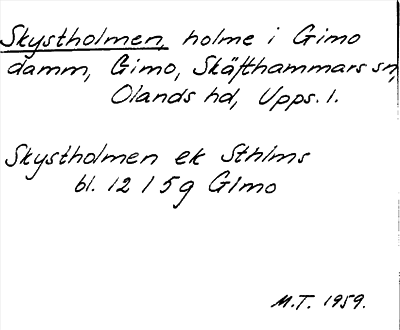 Skystholmen, holme i Gimo
damm, Gimo, Skäfthammars sn,
Olands hd, Upps. l.
Skystholmen ek Sthlms
bl. 12 I 5g GImo
M.T. 1959.